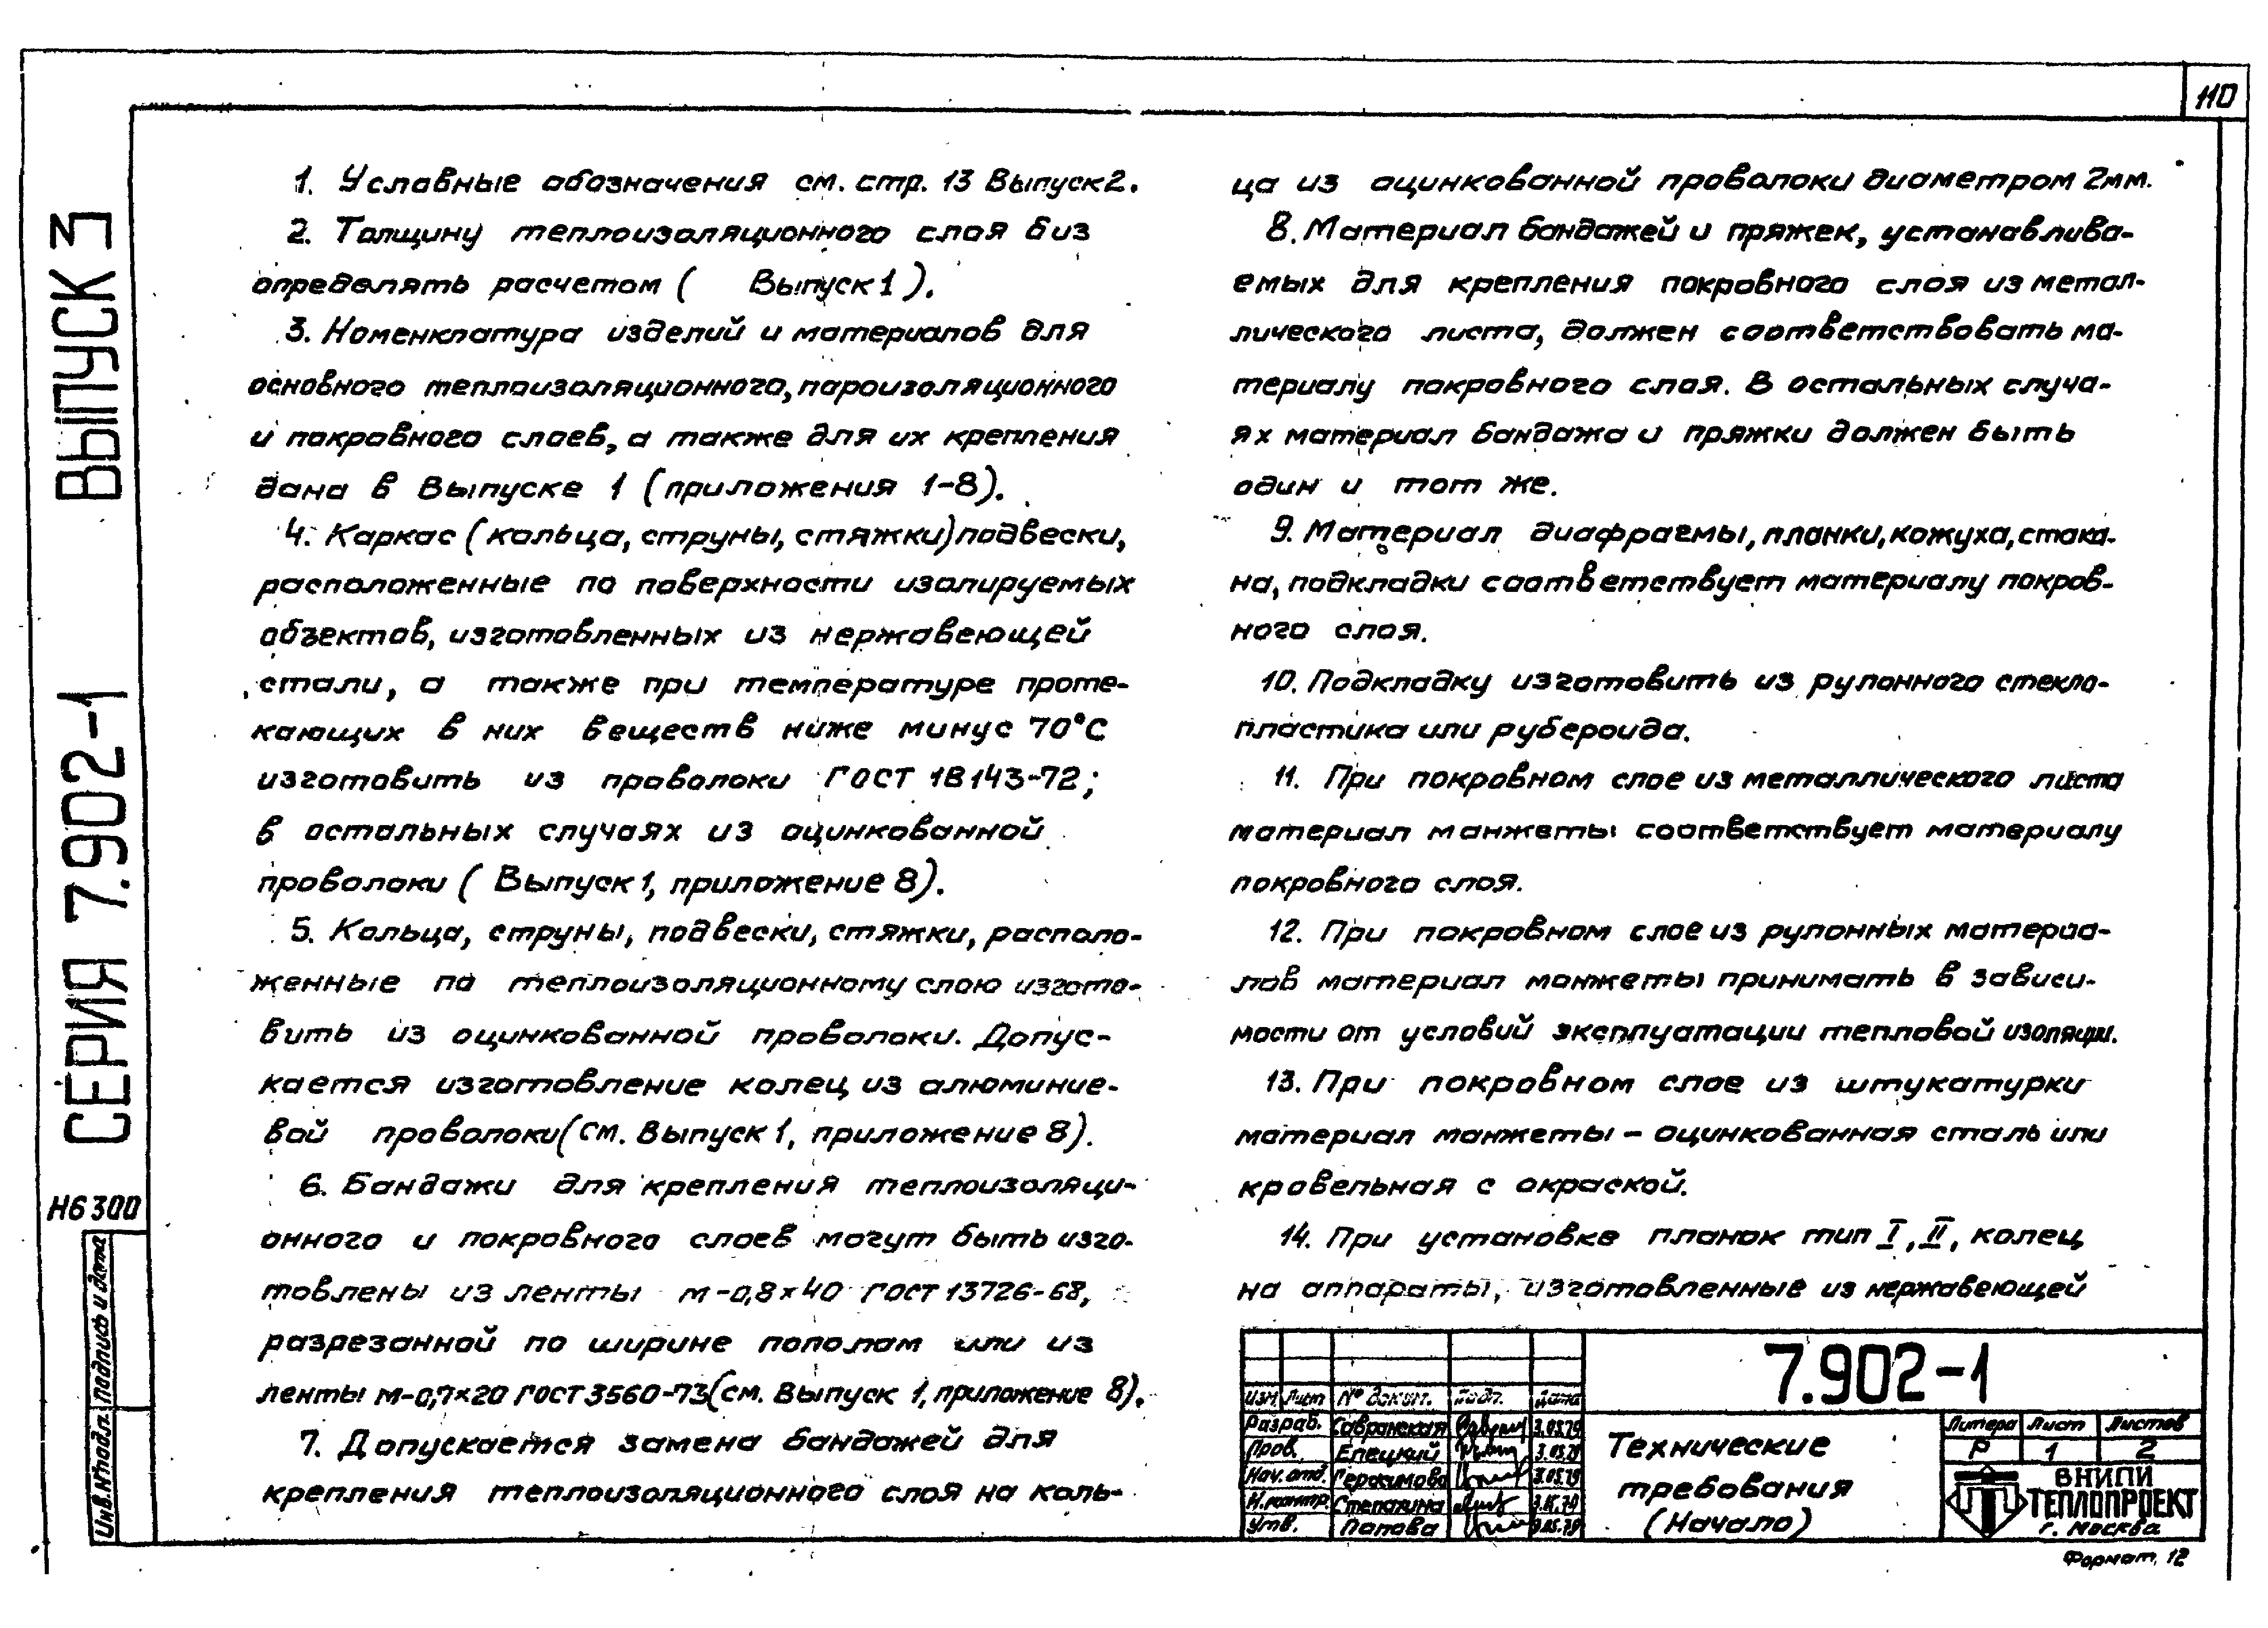 110
1. Условные обозначения см. стр. 13 Выпуск 2.
2. Толщину теплоизоляционного слоя биз
определять расчетом ( Выпуск 1 ).
3. Номенклатура изделий и материалов для
основного теплоизоляционного, пароизоляционного
и покровного слоев, а также для их крепления
дана в Выпуске 1 (приложения 1-8).
4. Каркас (кольца, струны, стяжки) подвески,
расположенные по поверхности изолируемых
объектов, изготовленных из нержавеющей
стали, а также при температуре проте-
кающих в них веществ ниже минус 70°С
изготовить из проволоки ГОСТ 18143-72;
в остальных случаях из оцинкованной
проволоки ( Выпуск 1, приложение 8).
5. Кольца, струны, подвески, стяжки, располо-
женные по теплоизоляционному слою изгото-
вить из оцинкованной проволоки. Допус-
кается изготовление колец из алюминие-
вой проволоки (см. Выпуск 1, приложение 8).
6. Бандажи для крепления теплоизоляци-
онного и покровного слоев могут быть изго-
товлены из ленты м-0,8×40 ГОСТ 13726-68,
разрезанной по ширине пополам или из
ленты м-0,7×20 ГОСТ 3560-73 (см. Выпуск 1, приложение 8).
7. Допускается замена бандажей для
крепления теплоизоляционного слоя на коль-
ца из оцинкованной проволоки диаметром 2мм.
8. Материал бандажей и пряжек, устанавлива-
емых для крепления покровного слоя из метал-
лического листа, должен соответствовать ма-
териалу покровного слоя. В остальных случа-
ях материал бандажа и пряжки должен быть
один и тот же.
9. Материал диафрагмы, планки, кожуха, стака-
на, подкладки соответствует материалу покров-
ного слоя.
10. Подкладку изготовить из рулонного стекло-
пластика или рубероида.
11. При покровном слое из металлического листа
материал манжеты соответствует материалу
покровного слоя.
12. При покровном слое из рулонных материа-
лов материал манжеты принимать в зависи-
мости от условий эксплуатации тепловой изоляции.
13. При покровном слое из штукатурки
материал манжеты - оцинкованная сталь или
кровельная с окраской.
14. При установке планок тип I, II, колец
на аппараты, изготовленные из нержавеющей
СЕРИЯ 7.902-1 ВЫПУСК 3
Н6300
Инв.№подл. Подпись и дата
7.902-1
Изм. Лист № докум. Подп. Дата
Разраб. Савранская 3.05.79
Пров. Елецкий
Нач. отд. Герасимова 3.05.79
Н.контр. Степанина
Утв. Попова
Технические
требования
(Начало)
Литера Лист Листов
Р 1 2
ВНИПИ
ТЕПЛОПРОЕКТ
г. Москва
Формат 12